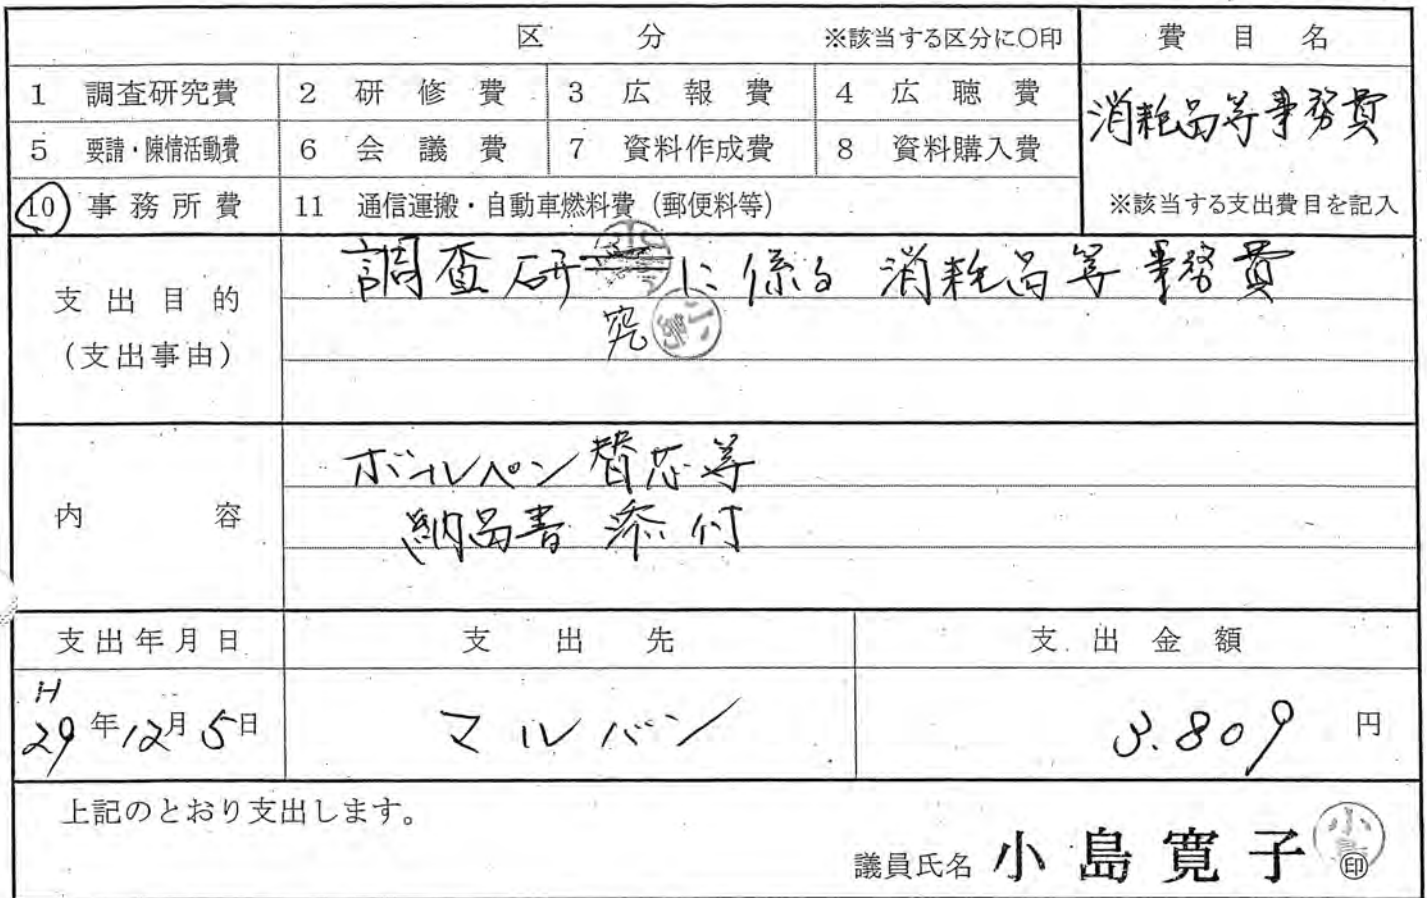 区 分 ※該当する区分に〇印 費 目 名
1 調査研究費 2 研 修 費 3 広 報 費 4 広 聴 費
消耗品等事務費
5 要請・陳情活動費 6 会 議 費 7 資料作成費 8 資料購入費
10 事 務 所 費 11 通信運搬・自動車燃料費（郵便料等） ※該当する支出費目を記入
支 出 目 的
（支出事由）
調査研 に係る 消耗品等事務費
究 小島
内 容
ボールペン替芯等
納品書 添付
支出年月日 支 出 先 支 出 金 額
H
29年12月5日 マルバン 3.809 円
上記のとおり支出します。
議員氏名 小島寛子 小島 印